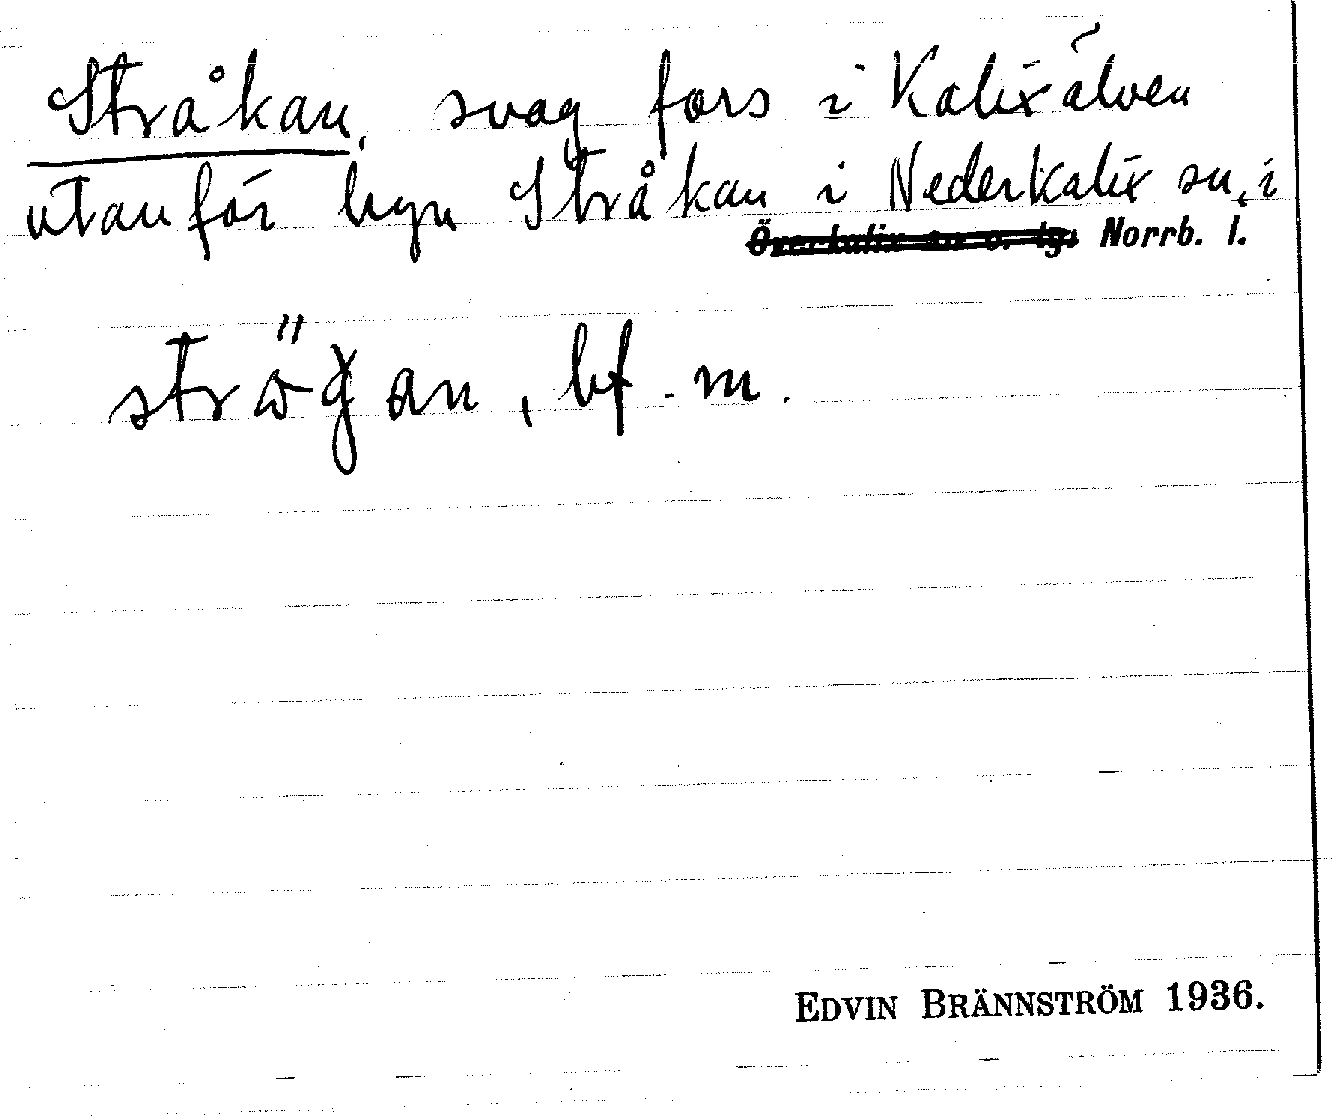 Stråkan, svag fors i Kalixälven
utanför byn Stråkan i Nederkalix sn, i
Överkalix sn o. tg. Norrb. l.
ströğan, bf. m.
EDVIN BRÄNNSTRÖM 1936.